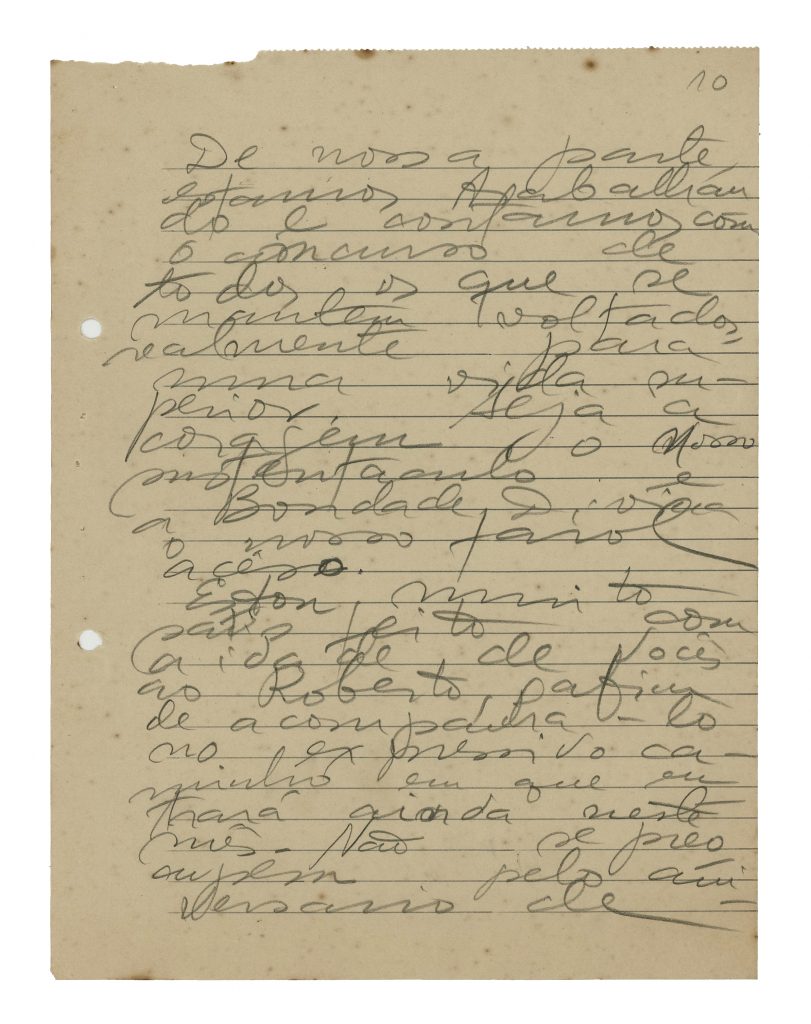 10
De nossa parte,
estamos trabalhan
do e contamos com
o concurso de
todos os que se
mantém voltados,
realmente para
uma vida su-
perior. Seja a
coragem o nosso
sustentaculo e
a Bondade Divina
o nosso farol
aceso.
Estou muito
satisfeito com
a ida de de vocês
ao Roberto, a fim
de acompanha-lo
no expressivo ca-
minho em que en
trará ainda neste
mês. Não se preo
cupem pelo ani-
versario de